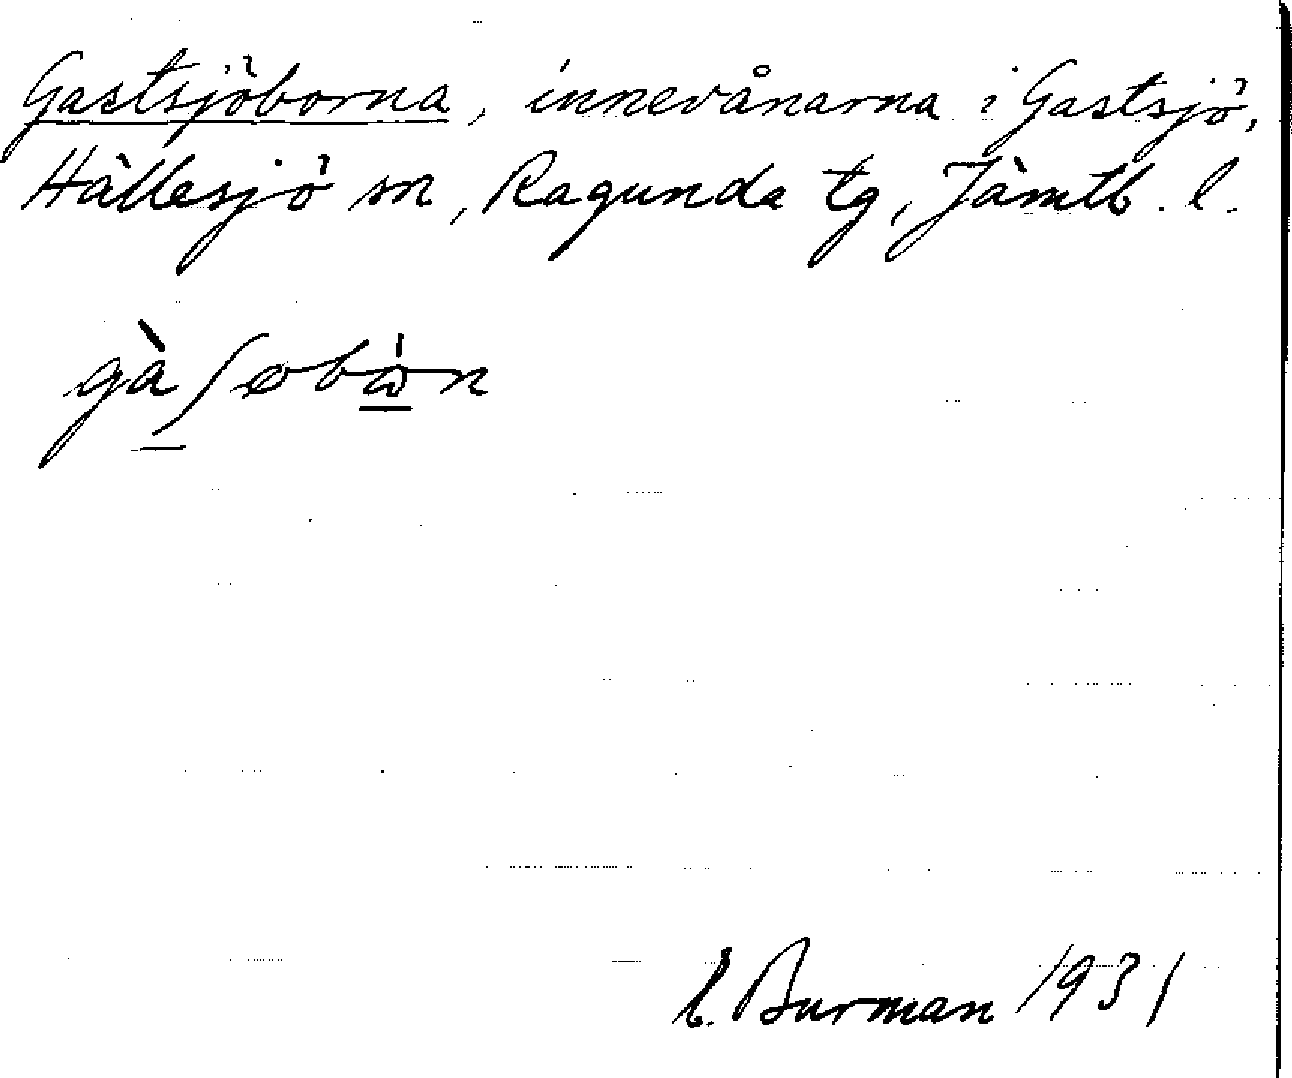 Gastsjöborna, innevånarna i Gastsjö,
Hällesjö sn, Ragunda tg, Jämtl. l.
E. Burman 1931